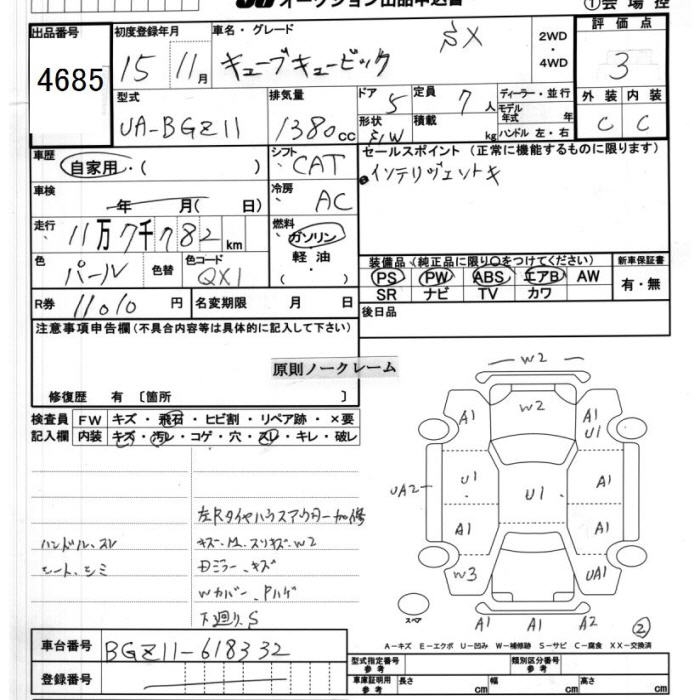 オークション出品申込書
①会場控
出品番号 4685
初度登録年月 15 11月
車名・グレード キューブキュービック SX
2WD・4WD
評価点 3
型式 UA-BGZ11
排気量 1380cc
ドア 5
定員 7人
形状 S/W
積載 kg
ディーラー・並行
モデル年式 年
ハンドル 左・右
外装 C
内装 C
車歴 自家用・( )
シフト CAT
セールスポイント (正常に機能するものに限ります)
インテリヴェントキ
車検 年 月( 日)
冷房 AC
走行 11万7千782km
燃料 ガソリン・軽油・( )
色 パール
色替
色コード QX1
装備品 (純正品に限り○をつけてください)
PS PW ABS エアB AW
SR ナビ TV カワ
新車保証書 有・無
R券 11010円
名変期限 月 日
後日品
注意事項申告欄(不具合内容等は具体的に記入して下さい)
原則ノークレーム
修復歴 有 〔箇所 〕
検査員記入欄
FW キズ・飛石・ヒビ割・リペア跡・×要
内装 キズ・汚レ・コゲ・穴・スレ・キレ・破レ
左Rタイヤハウスアウター加修
ハンドル、スレ
キズ、M、スリキズ、W2
シート、シミ
Dミラー、キズ
Wカバー、Pハゲ
下廻り、S
W2
W2
A1 A1
U1
UA2 U1 U1 A1
A1 A1
W3 UA1
スペア A1 A1 A2
②
A-キズ E-エクボ U-凹み W-補修跡 S-サビ C-腐食 XX-交換済
車台番号 BGZ11-618332
登録番号
型式指定番号 参考
類別区分番号 参考
車庫証明用 参考 長さ cm 幅 cm 高さ cm